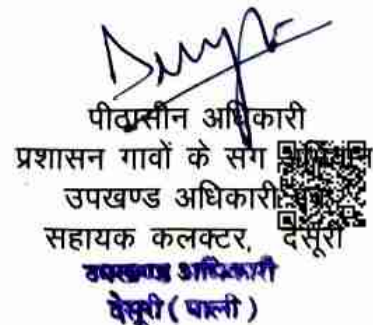 पीठासीन अधिकारी
प्रशासन गावों के संग अभियान
उपखण्ड अधिकारी एवं
सहायक कलक्टर, देसूरी
उपखण्ड अधिकारी
देसूरी ( पाली )